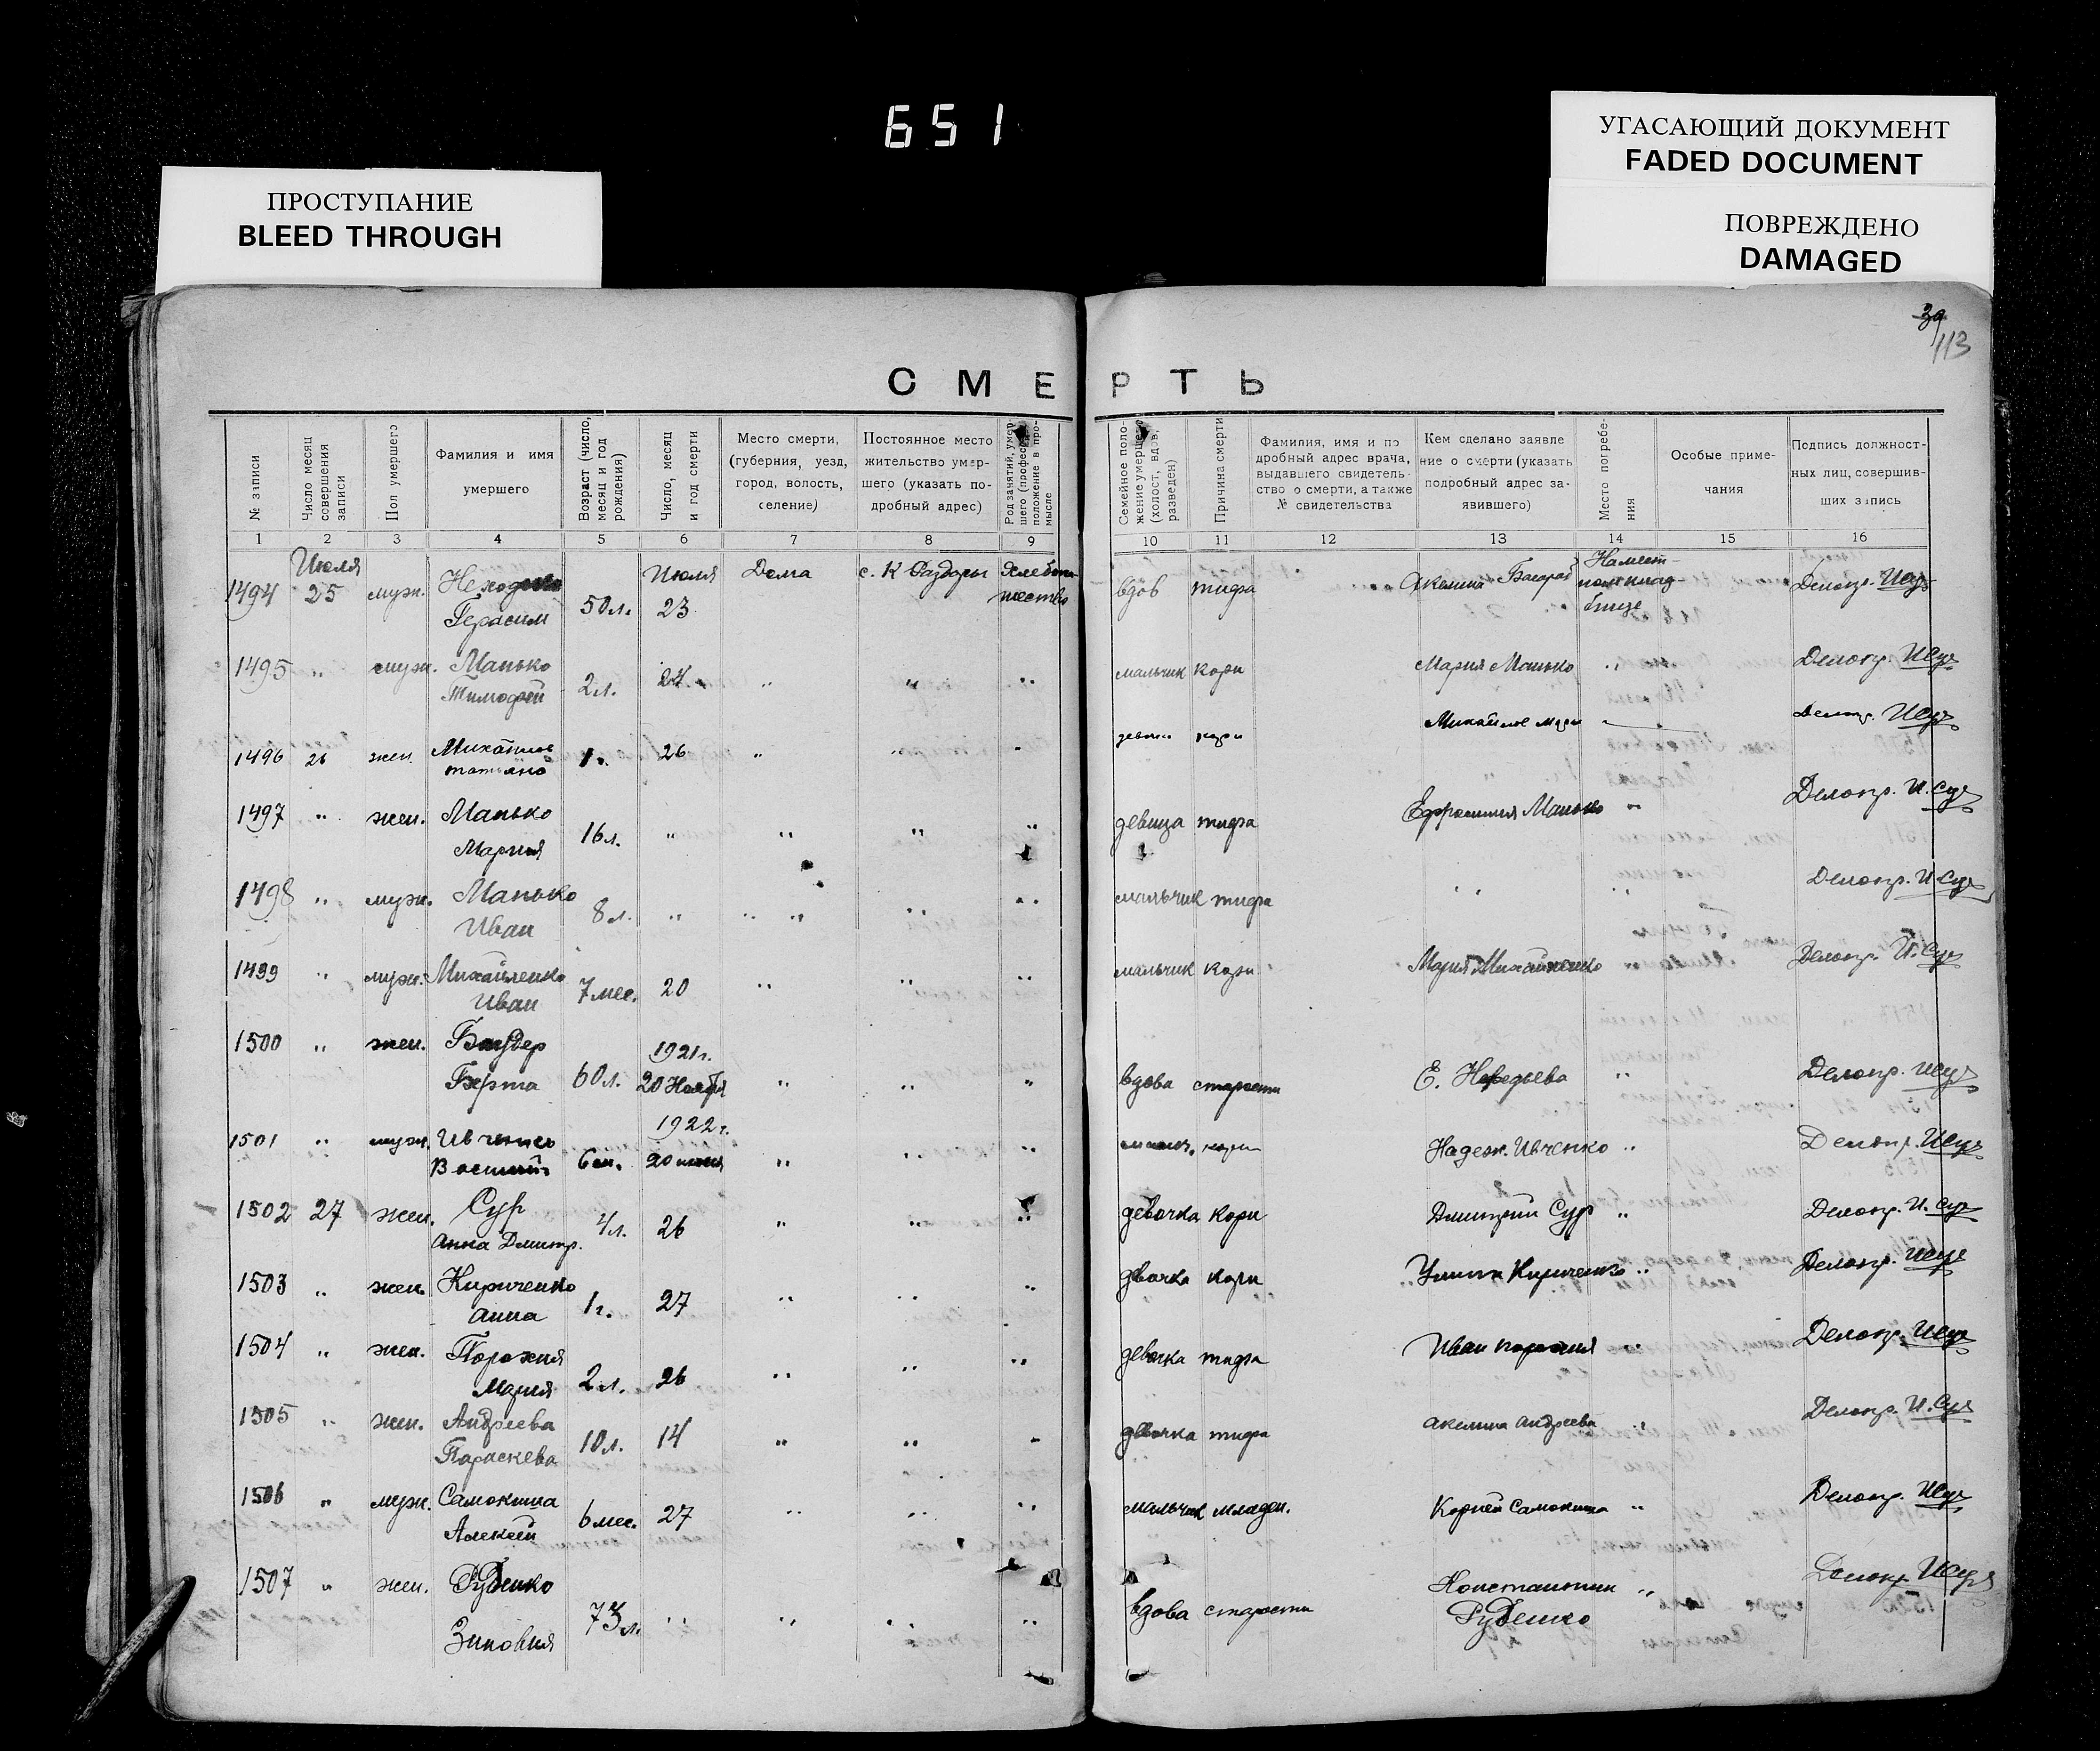 651
ПРОСТУПАНИЕ
BLEED THROUGH
УГАСАЮЩИЙ ДОКУМЕНТ
FADED DOCUMENT
ПОВРЕЖДЕНО
DAMAGED
39
113
СМЕРТЬ
№ записи
Число месяц совершения записи
Пол умершего
Фамилия и имя умершего
Возраст (число, месяц и год рождения)
Число, месяц и год смерти
Место смерти, (губерния, уезд, город, волость, селение)
Постоянное место жительство умершего (указать подробный адрес)
Род занятий, умершего (профессия, положение в промысле
Семейное положение умершего (холост, вдов, разведен)
Причина смерти
Фамилия, имя и подробный адрес врача, выдавшего свидетельство о смерти, а также № свидетельства
Кем сделано заявление о смерти (указать подробный адрес заявившего)
Место погребения
Особые примечания
Подпись должностных лиц, совершивших запись
1 2 3 4 5 6 7 8 9 10 11 12 13 14 15 16
1494 Июля 25 муж. Герасим 50 л. Июля 23 Дома с. К Раздоры вдов тифа Акелина Делопр.
1495 " муж. Манько Тимофей 2 л. 24 " " " мальчик кори Мария Манько " Делопр.
1496 26 жен. 1 г. 26 " " " кори Делопр.
1497 " жен. Манько Мария 16 л. " " " " девица тифа Ефросиния Манько " Делопр. И. Сух
1498 " муж. Манько Иван 8 л. " " " " " мальчик тифа " " Делопр. И. Сух
1499 " муж. Михайленко Иван 7 мес. 20 " " " мальчик кори Мария Михайленко " Делопр. И. Сух
1500 " жен. Берта 60 л. 1921 г. 20 Ноября " " " вдова старости Е. " Делопр.
1501 " муж. Ивченко 1922 г. 20 " " " кори Надеж. Ивченко " Делопр.
1502 27 жен. Сур Анна Дмитр. 4 л. 26 " " " девочка кори Дмитрий Сур " Делопр. И. Сух
1503 " жен. Кириченко Анна 1 г. 27 " " " девочка кори Кириченко " Делопр.
1504 " жен. Порожня Мария 2 л. 26 " " " девочка тифа Иван " Делопр.
1505 " жен. Андреева Параскева 10 л. 14 " " " девочка тифа Акелина Андреева " Делопр. И. Сух
1506 " муж. Самокиша Алексей 6 мес. 27 " " " мальчик младен. Корней Самокиша " Делопр.
1507 " жен. Руденко Зиновия 73 л. " " " " вдова старости Константин Руденко " Делопр.